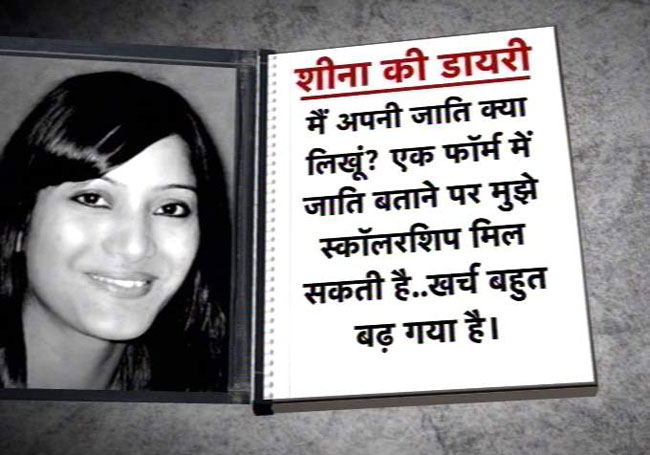 शीना की डायरी
मैं अपनी जाति क्या
लिखूं? एक फॉर्म में
जाति बताने पर मुझे
स्कॉलरशिप मिल
सकती है..खर्च बहुत
बढ़ गया है।